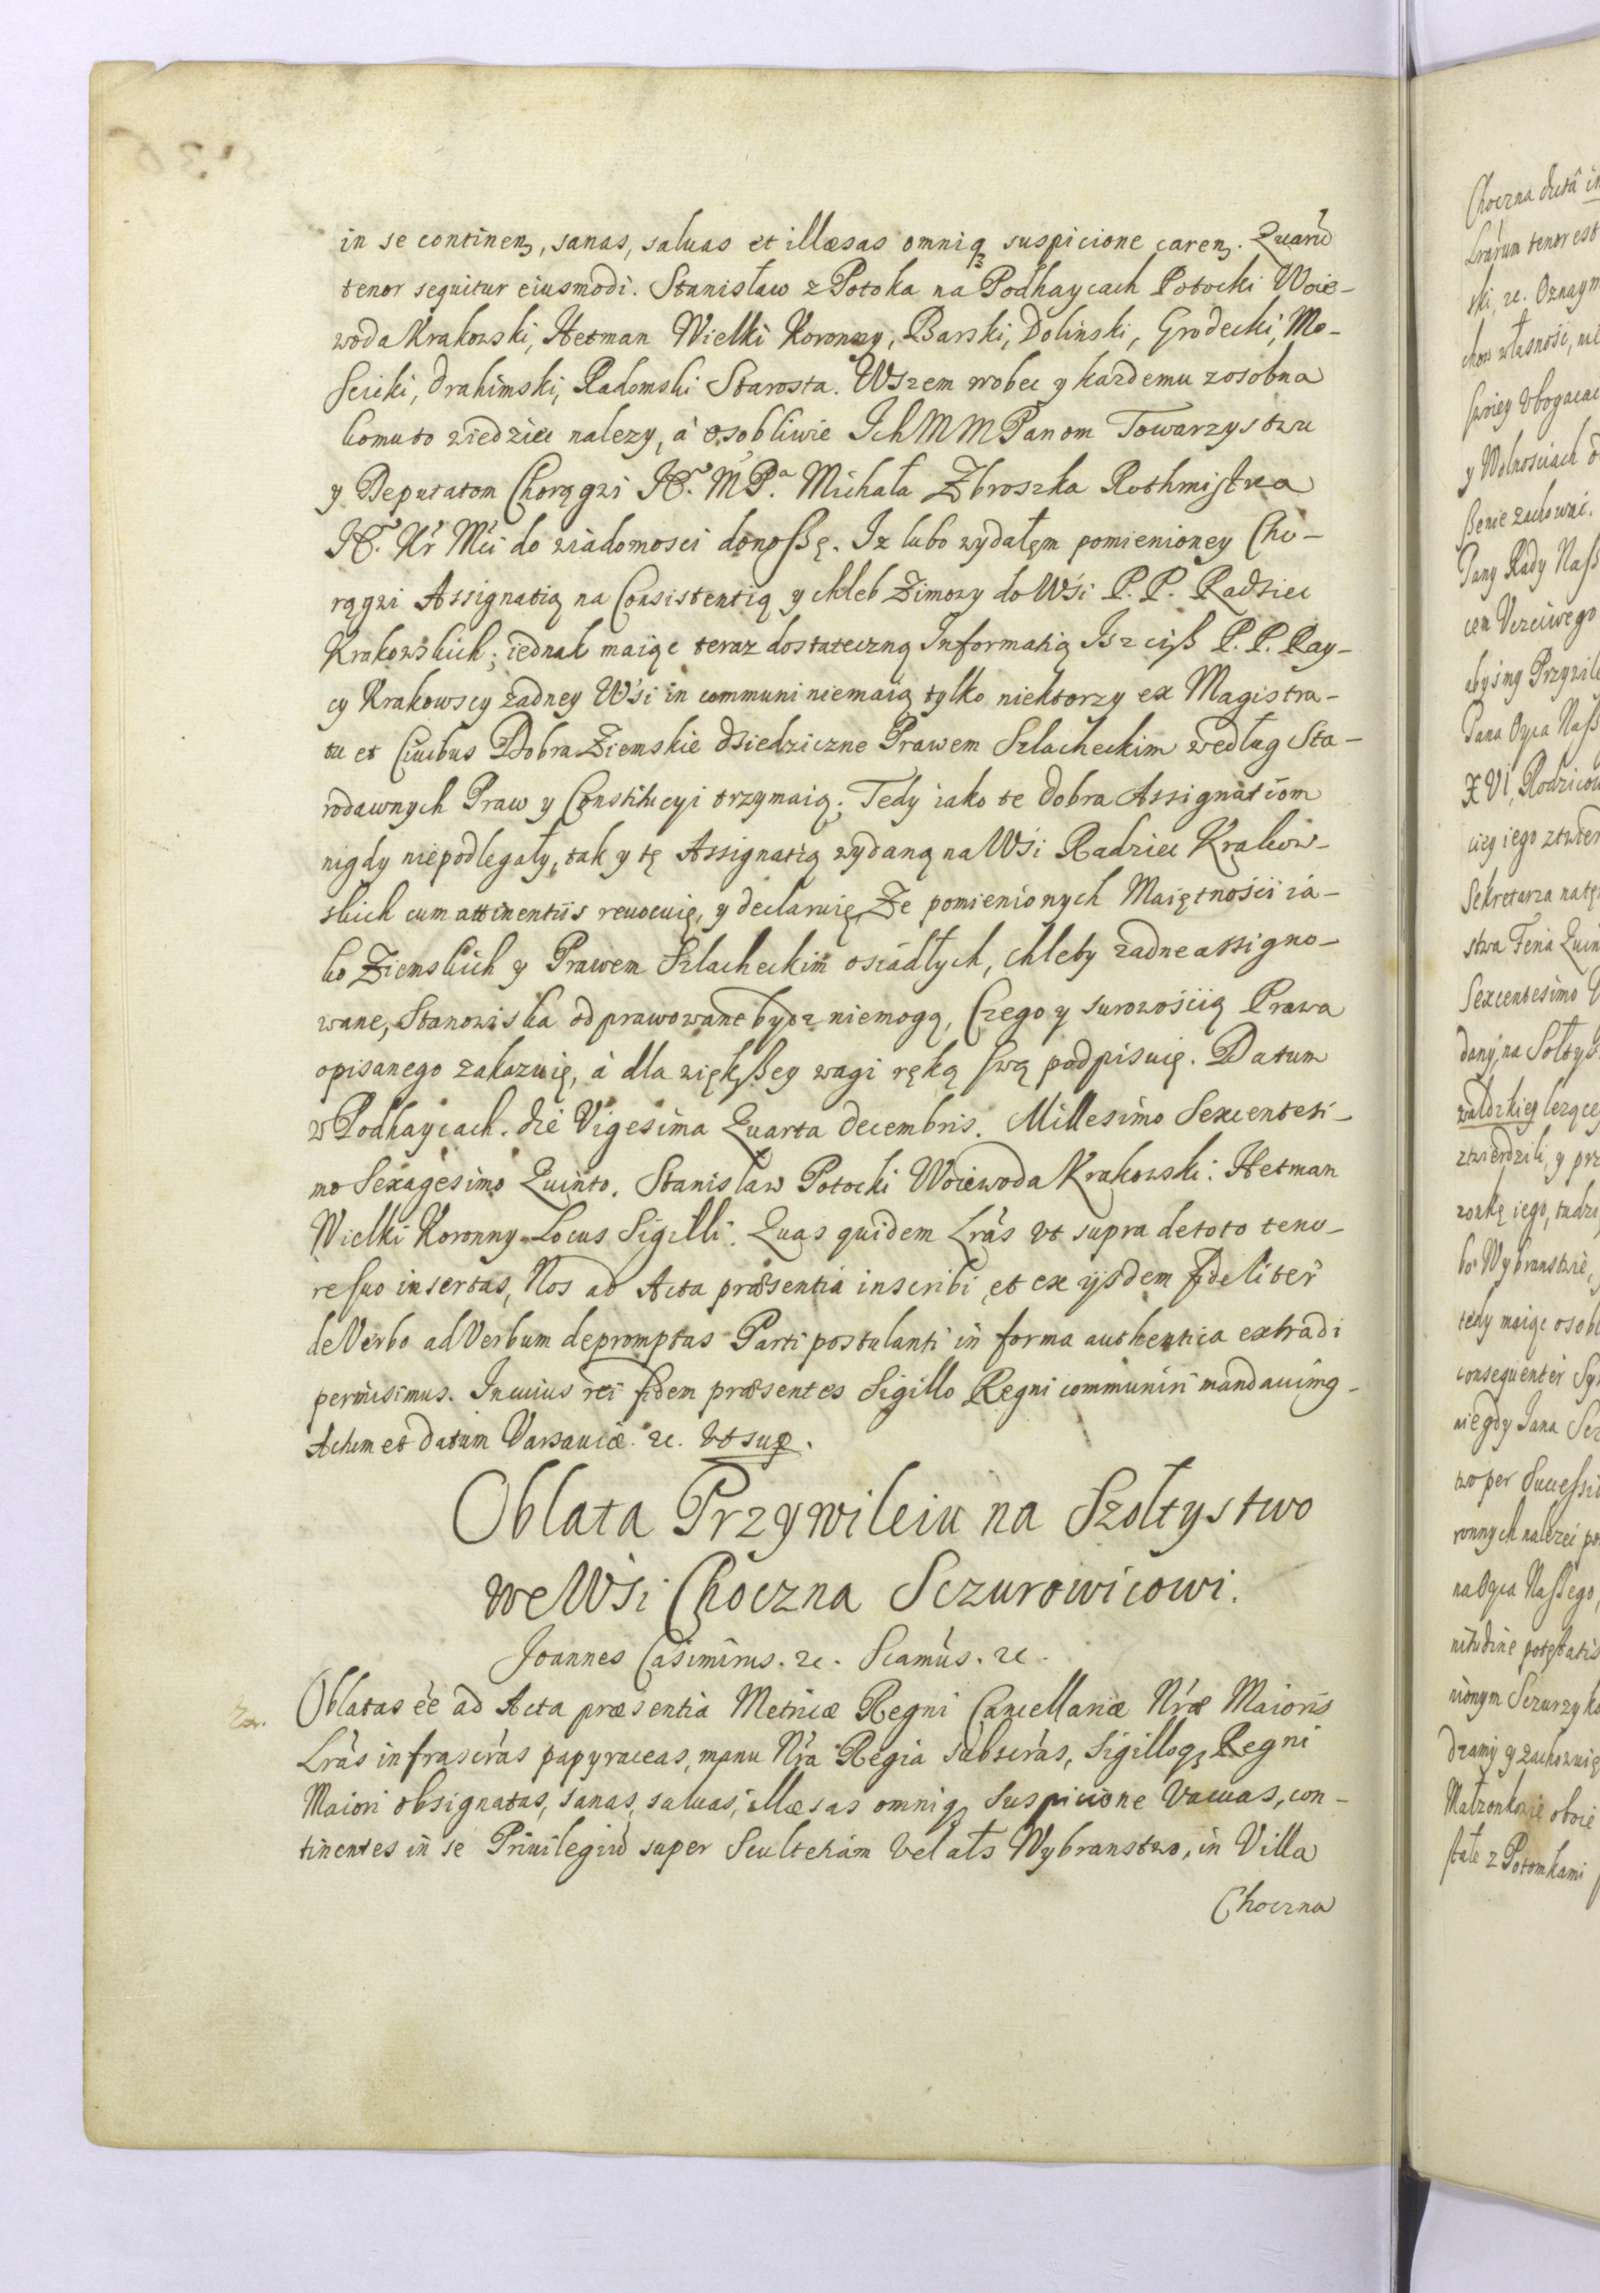 in se continen, sanas, saluas et illæsas omniq suspicione caren. Quarū
tenor sequitur eiusmodi. Stanisław z Potoka na Podhaycach Potocki Woie-
woda Krakowski, Hetman Wielki Koronny, Barski, Dolinski, Grodecki, Mo-
scicki, Drahimski, Radomski Starosta. Wszem wobec y każdemu zosobna
komu to wiedziec nalezy, à osobliwie Ich M M Panom Towarzystwu
y Deputatom Chorągwi Jº. M Pª. Michała Zbroszka Rothmistrza
Jº. Kr Mci do wiadomosci donoszę. Iz lubo wydałem pomienioney Cho-
rągwi Assignatią na Consistentią y chleb Zimowy do Wsi P. P. Radziec
Krakowskich; iednak maiąc teraz dostateczną Informatią Isz ciż P. P. Ray-
cy Krakowscy żadney Wsi in communi niemaią tylko niektorzy ex Magistra-
tu et Ciuibus Dobra Ziemskie dziedziczne Prawem Szlacheckim według Sta-
rodawnych Praw y Constitucyi trzymaią; Tedy iako te dobra Assignatiom
nigdy niepodlegały, tak y tę Assignatią wydaną na Wsi Radziec Krakow-
skich cum attinentiis reuocuię, y declaruię, Ze pomienionych Maiętności ia-
ko Ziemskich y Prawem Szlacheckim osiadłych, chleby żadne assigno-
wane, Stanowiska odprawowane bydz niemogą, Czego y surowością Prawa
opisanego zakazuię, à dla większey wagi ręką swą podpisuię. Datum
w Podhaycach. die Vigesima Quarta decembris. Millesimo Sexcentesi-
mo Sexagesimo Quinto. Stanislaw Potocki Woiewoda Krakowski: Hetman
Wielki Koronny. Locus Sigilli. Quas quidem Lrás vt supra de toto teno-
re suo insertas, Nos ad Acta præsentia inscribi, et ex ijsdem fideliter
de Verbo ad Verbum depromptas Parti postulanti in forma authentica extradi
permisimus. In cuius rei fidem præsentes Sigillo Regni communiri mandauimg-
Actum et datum Varsauiæ. &c. vt sup.
Oblata Przywileiu na Szołtystwo
we Wsi Choczna Sczurowicowi.
Joannes Casimirus. &c. Scamus. &c.
Oblatas eē ad Acta præsentia Metricæ Regni Cancellariæ Nræ Maioris
Lrás infrascrás papyraceas, manu Nra Regia subscrás, Sigilloq Regni
Maiori obsignatas, sanas, saluas, illæsas omniq suspicione vacuas, con-
tinentes in se Priuilegiū super Scultetiam vel als Wybranstwo, in Villa
Choczna
Choczna dicta
Lrarum tenor est
ski, &c. Oznaym
chow własnosc,
swiey vbogacac
y Wolnosciach
ßenie zachowac.
Pany Rady Naß
cen Vczciwego
abysmy Przywile
Pana Oyca Naß
X VI, Rodzicow
iego ztwier
Sekretarza
stwa Fenia Quin
Sexcentesimo
dany, na Sołtys
lezące
ztwierdzili, y prz
iego, tudzi
Wybranstwie,
tedy maiąc osobl
consequenter
niegdy Jana
per Successi
ronnych nalezei po
na Oyca Naßego,
nitudine potestatis
nionym Sczurzyko
dziamy y zachowuię
Małżonkowie oboie
z Potomkami